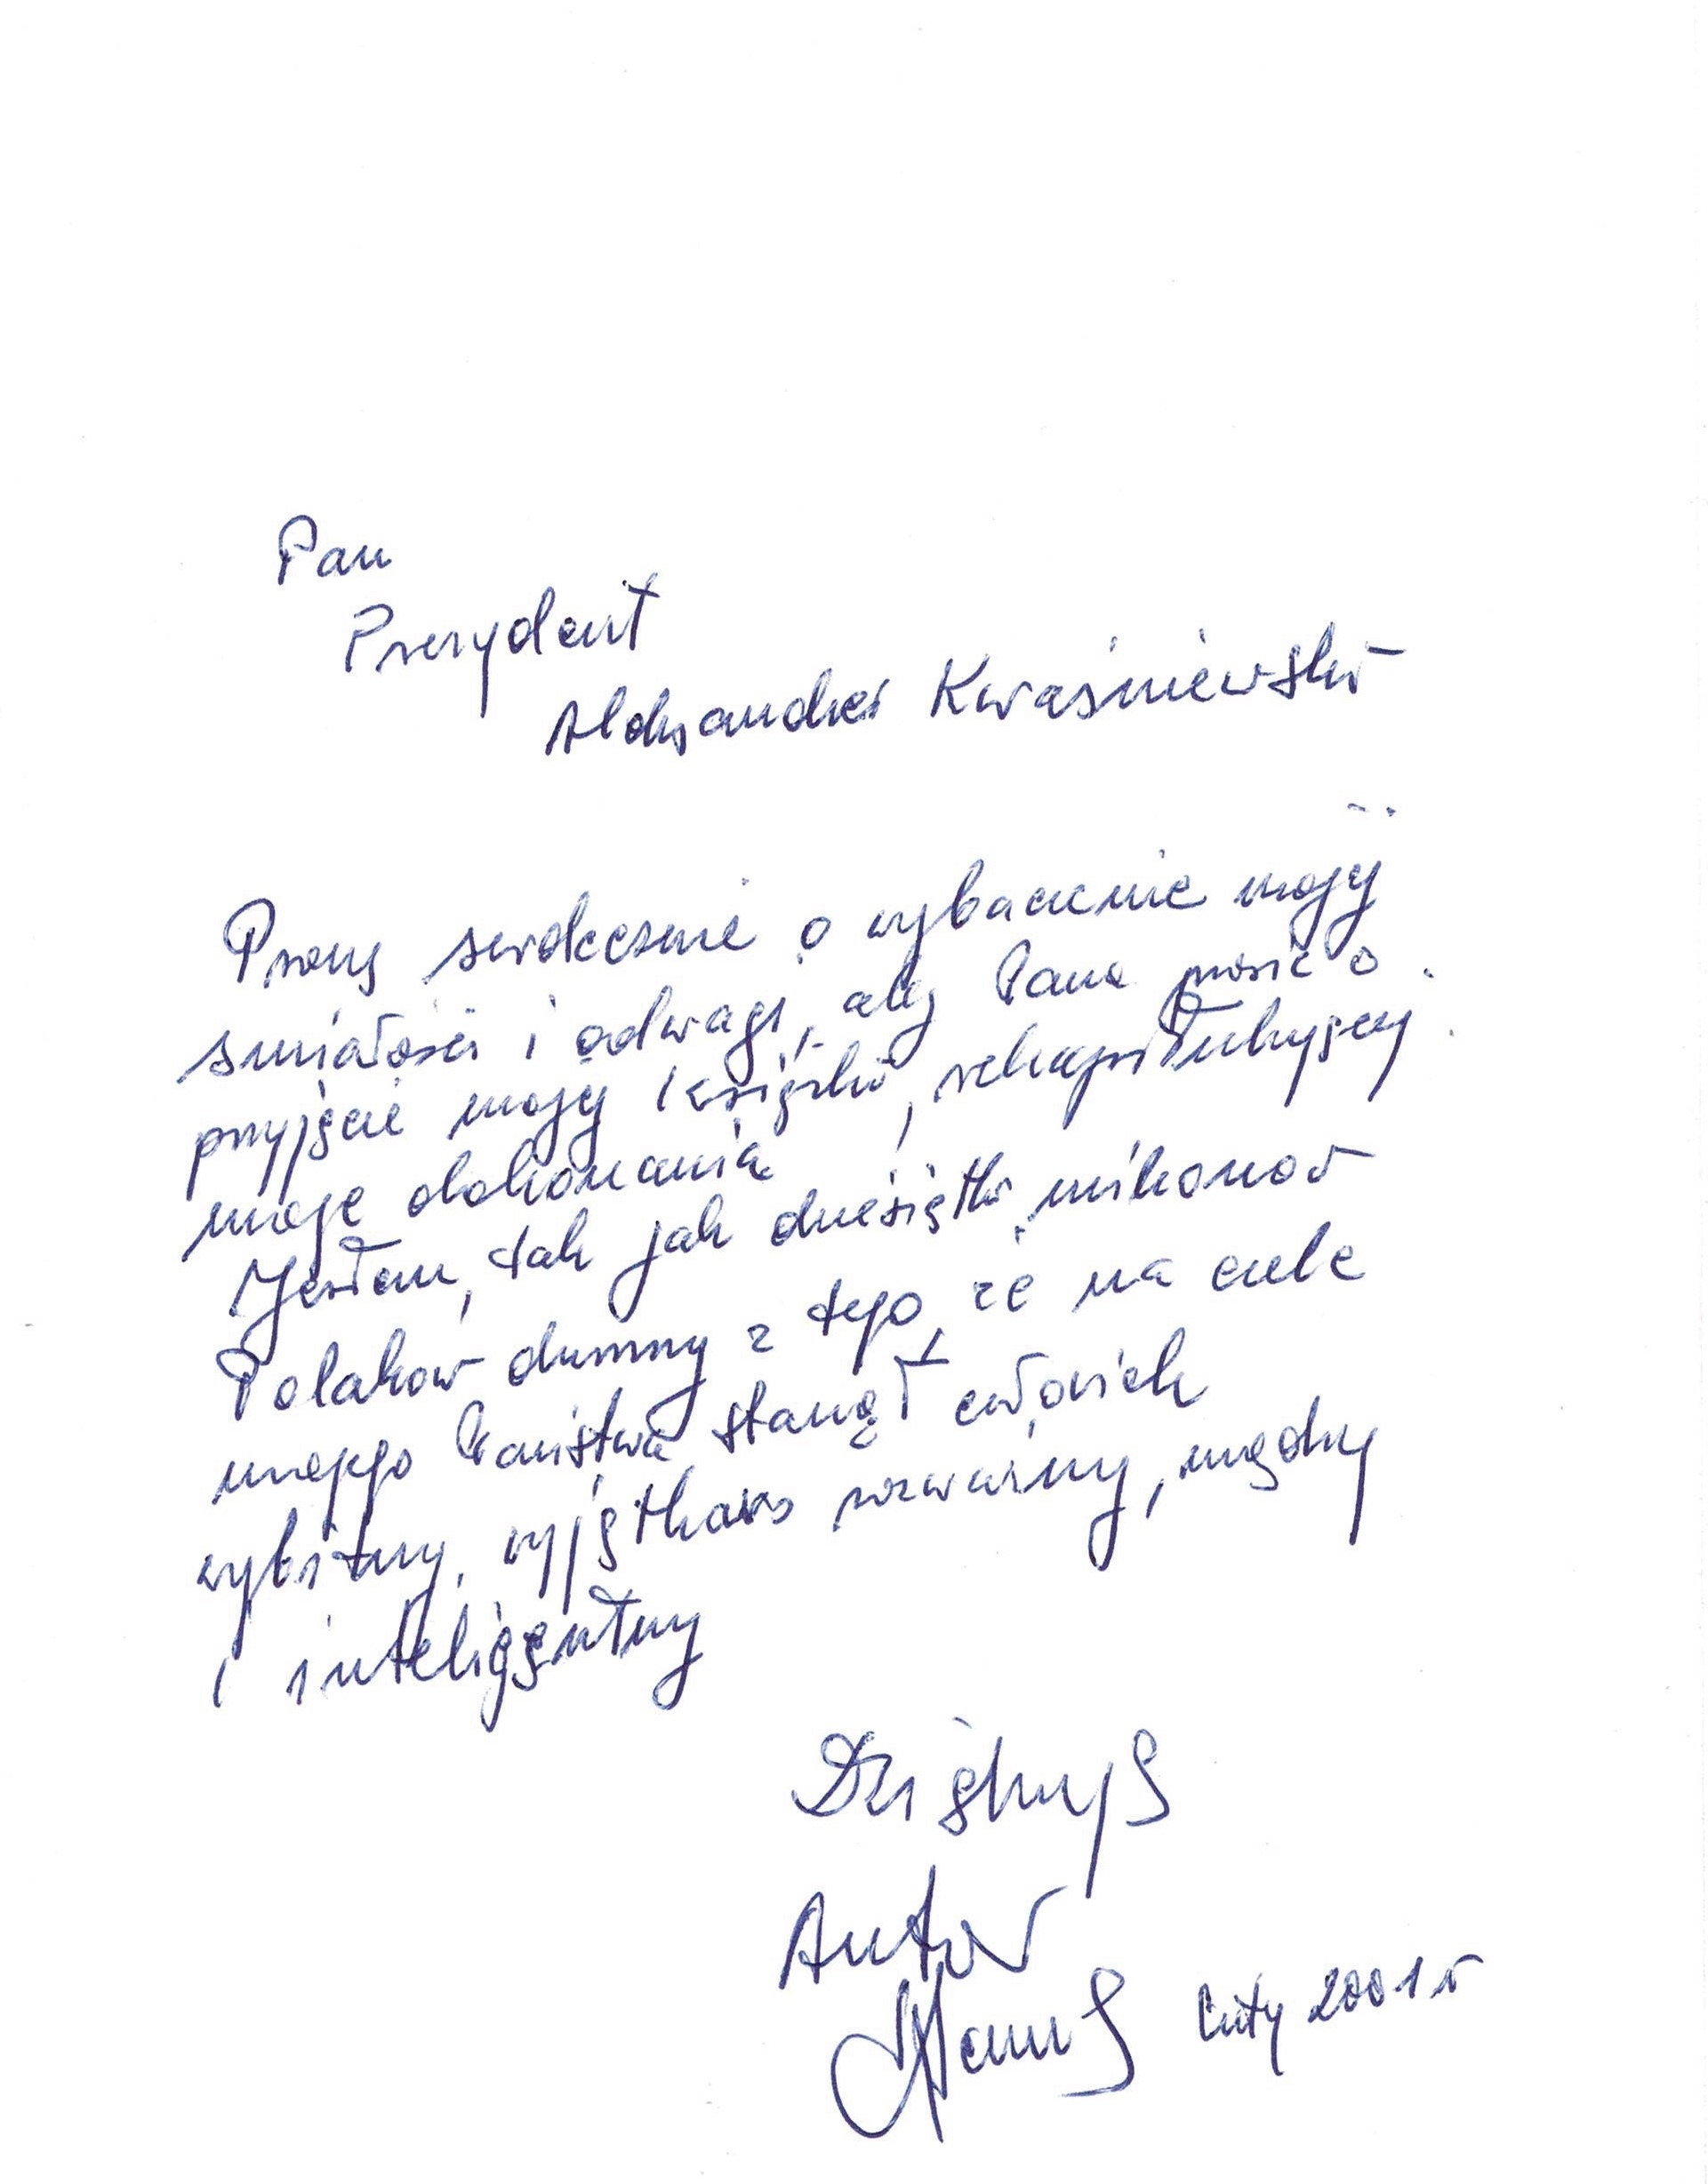 Pan
Prezydent
Aleksander Kwaśniewski
Proszę serdecznie o wybaczenie mojej
śmiałości i odwagi, aby Pana prosić o
przyjęcie mojej książki, rekapitulującej
moje dokonania
Jestem, tak jak dziesiątki milionów
Polaków dumny z tego, że na czele
mojego Państwa stanął człowiek
wybitny, wyjątkowo rozważny, mądry
i inteligentny
Dziękuję
Autor
luty 2001 r